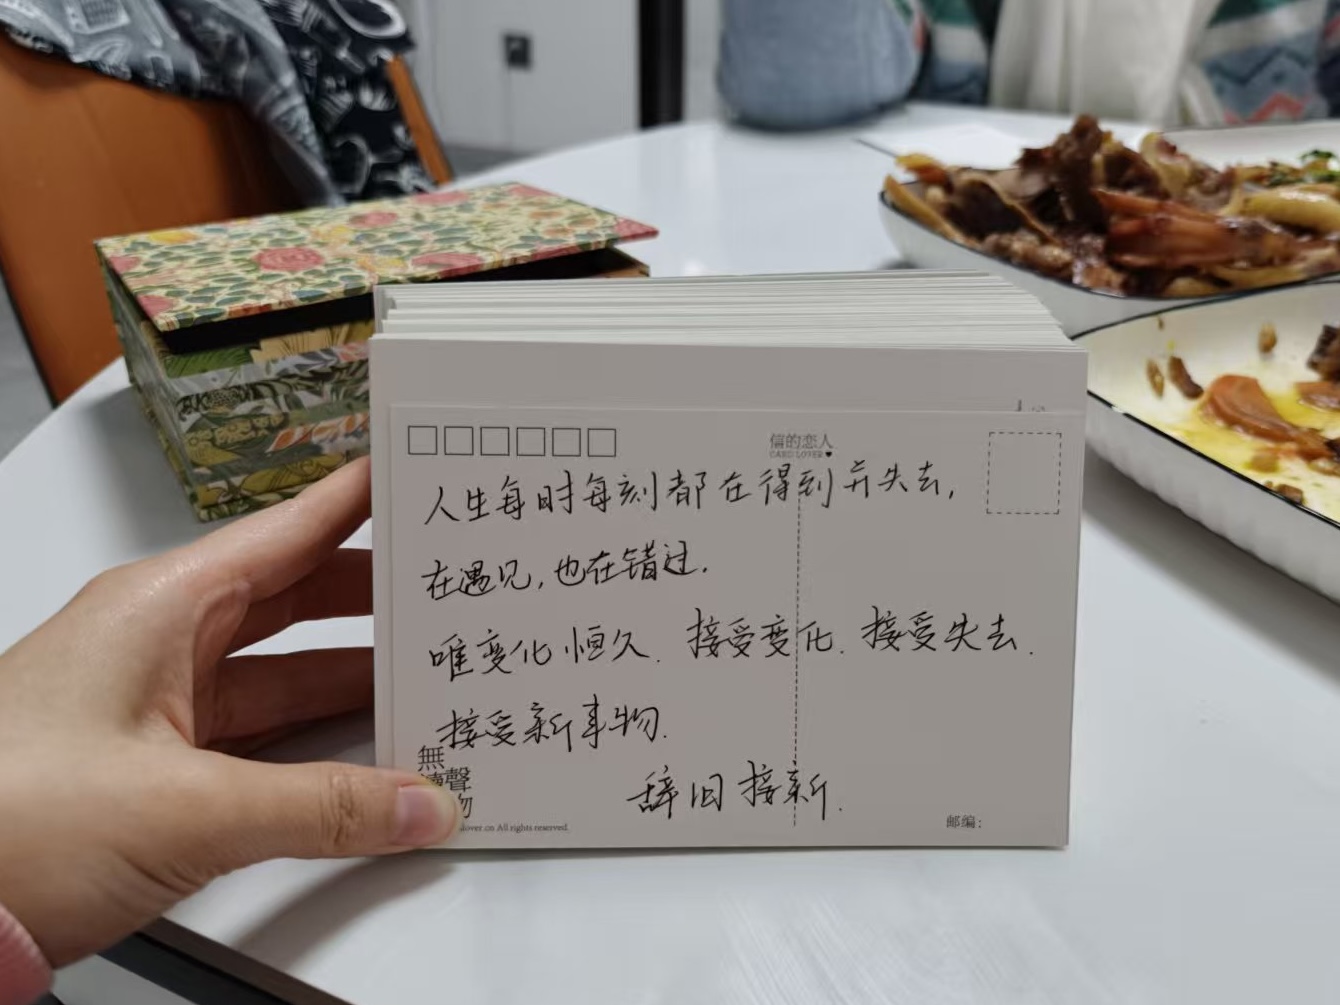 信的恋人
CARD LOVER
人生每时每刻都在得到并失去,
在遇见,也在错过.
唯变化恒久. 接受变化. 接受失去.
接受新事物.
辞旧接新.
無
聲
物
lover.cn All rights reserved.
邮编: